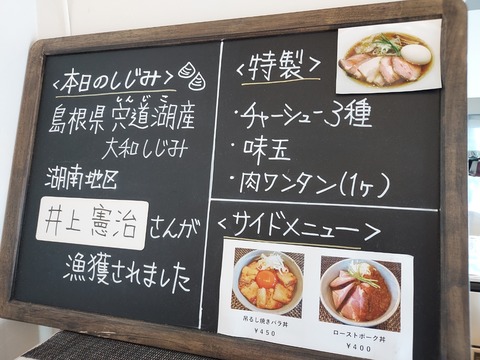 <本日のしじみ>
しんじこ
島根県 宍道湖産
大和しじみ
湖南地区
井上 憲治 さんが
漁獲されました
<特製>
・チャーシュー3種
・味玉
・肉ワンタン(1ヶ)
<サイドメニュー>
吊るし焼きバラ丼
¥450
ローストポーク丼
¥400